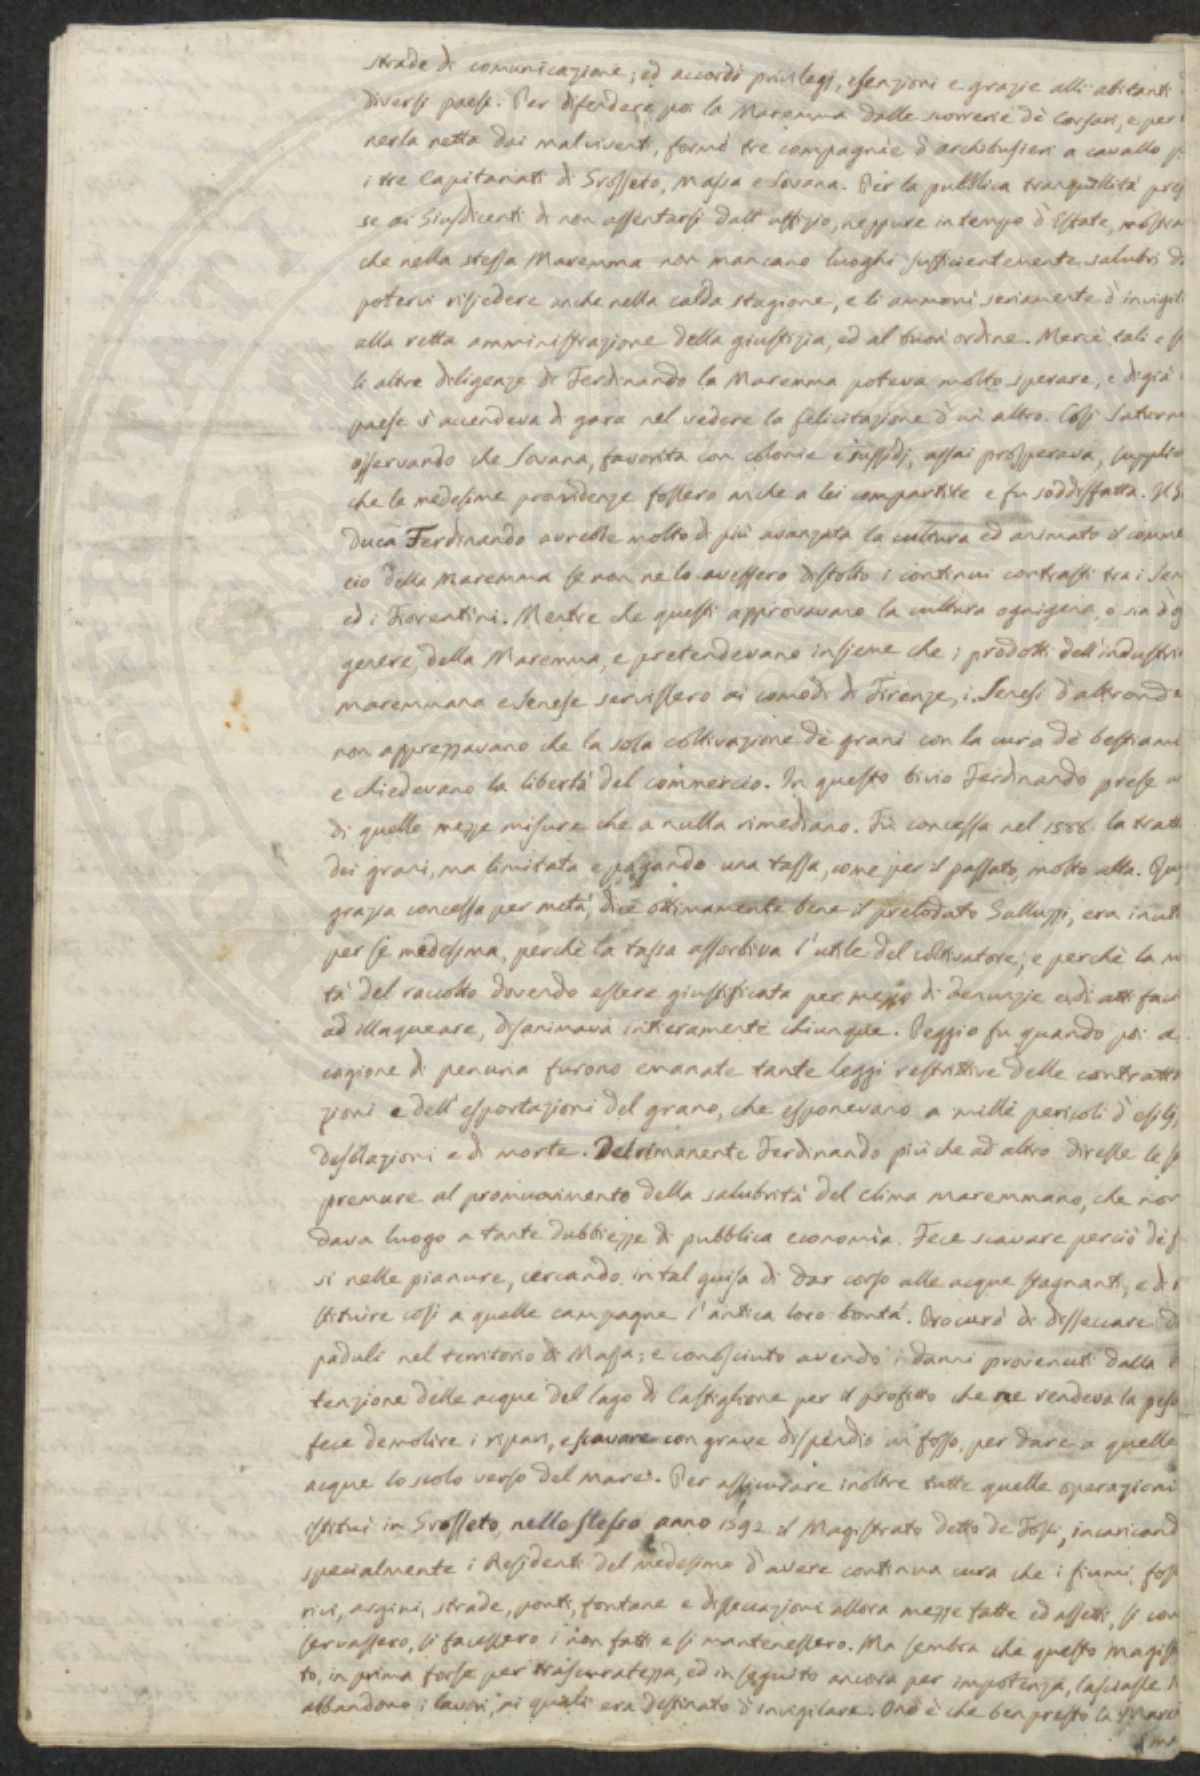 strade di comunicazione; ed accordò privilegj, esenzioni e grazie alli abitanti
diversi paesi. Per difendere poi la Maremma dalle scorrerie dè Corsari, e per
nerla netta dai malviventi, formò tre compagnie d'archibusieri a cavallo p
i tre Capitanati di Grosseto, Massa e Sovana. Per la pubblica tranquillità pres
se ai Giusdicenti di non assentarsi dall'uffizio, neppure in tempo d'Estate, mostra
che nella stessa Maremma non mancano luoghi sufficientemente salubri d
potervi risiedere anche nella calda stagione, e li ammonì seriamente d'invigil
alla retta amministrazione della giustizia, ed al buon ordine. Mercè tali e s
li altre diligenze di Ferdinando la Maremma poteva molto sperare, e digià
paese s'accendeva di gara nel vedere la felicitazione d'un altro. Così Saturn
osservando che Sovana, favorita con colonie e sussidj, assai prosperava, supplic
che le medesime providenze fossero anche a lei compartite e fu soddisfatta. Il G.
Duca Ferdinando avrebbe molto di più avanzata la cultura ed animato il comme
cio della Maremma se non ne lo avessero distolto i continui contrasti tra i Sen
ed i Fiorentini. Mentre che questi approvavano la cultura ognigena, o sia d'og
genere, della Maremma, e pretendevano insieme che i prodotti dell'industri
maremmana e Senese servissero ai comodi di Firenze, i Senesi d'altronde
non apprezzavano che la sola coltivazione dè grani con la cura dè bestiami
e chiedevano la libertà del commercio. In questo bivio Ferdinando prese u
di quelle mezze misure che a nulla rimediano. Fù concessa nel 1588 la tratt
dei grani, ma limitata e pagando una tassa, come per il passato, molto alta. Que
grazia concessa per metà, dice ottimamente bene il prelodato Galluzzi, era inuti
per se medesima, perchè la tassa assorbiva l'utile del coltivatore; e perchè la m
tà del raccolto dovendo essere giustificata per mezzo di denunzie e di atti faci
ad illaqueare, disanimava intieramente chiunque. Peggio fu quando poi a
cagione di penuria furono emanate tante leggi restrittive delle contratta
zioni e dell'esportazioni del grano, che esponevano a mille pericoli d'esilj,
desolazioni e di morte. Del rimanente Ferdinando più che ad altro diresse le s
premure al promuovimento della salubrità del clima maremmano, che non
dava luogo a tante dubbiezze di pubblica economia. Fece scavare perciò dè f
si nelle pianure, cercando in tal guisa di dar corso alle acque stagnanti, e di r
stituire così a quelle campagne l'antica loro bontà. Procurò di disseccare d
paduli nel territorio di Massa; e conosciuto avendo i danni provenuti dalla r
tenzione delle acque del lago di Castiglione per il profitto che ne rendeva la pesc
fece demolire i ripari, e scavare con grave dispendio un fosso, per dare a quelle
acque lo scolo verso del mare. Per assicurare inoltre tutte quelle operazioni
istituì in Grosseto, nello stesso anno 1592 il Magistrato detto de Fossi, incaricand
specialmente i Residenti del medesimo d'avere continua cura che i fiumi, foss
rivi, argini, strade, ponti, fontane e disseccazioni allora mezze fatte ed assetti, si con
servassero, si facessero i non fatti e si mantenessero. Ma sembra che questo Magist
to, in prima forse per trascuratezza, ed in seguito ancora per impotenza, lasciasse i
abbandono i lavori, ai quali era destinato d'invigilare. Ond'è che ben presto la Mare
ma